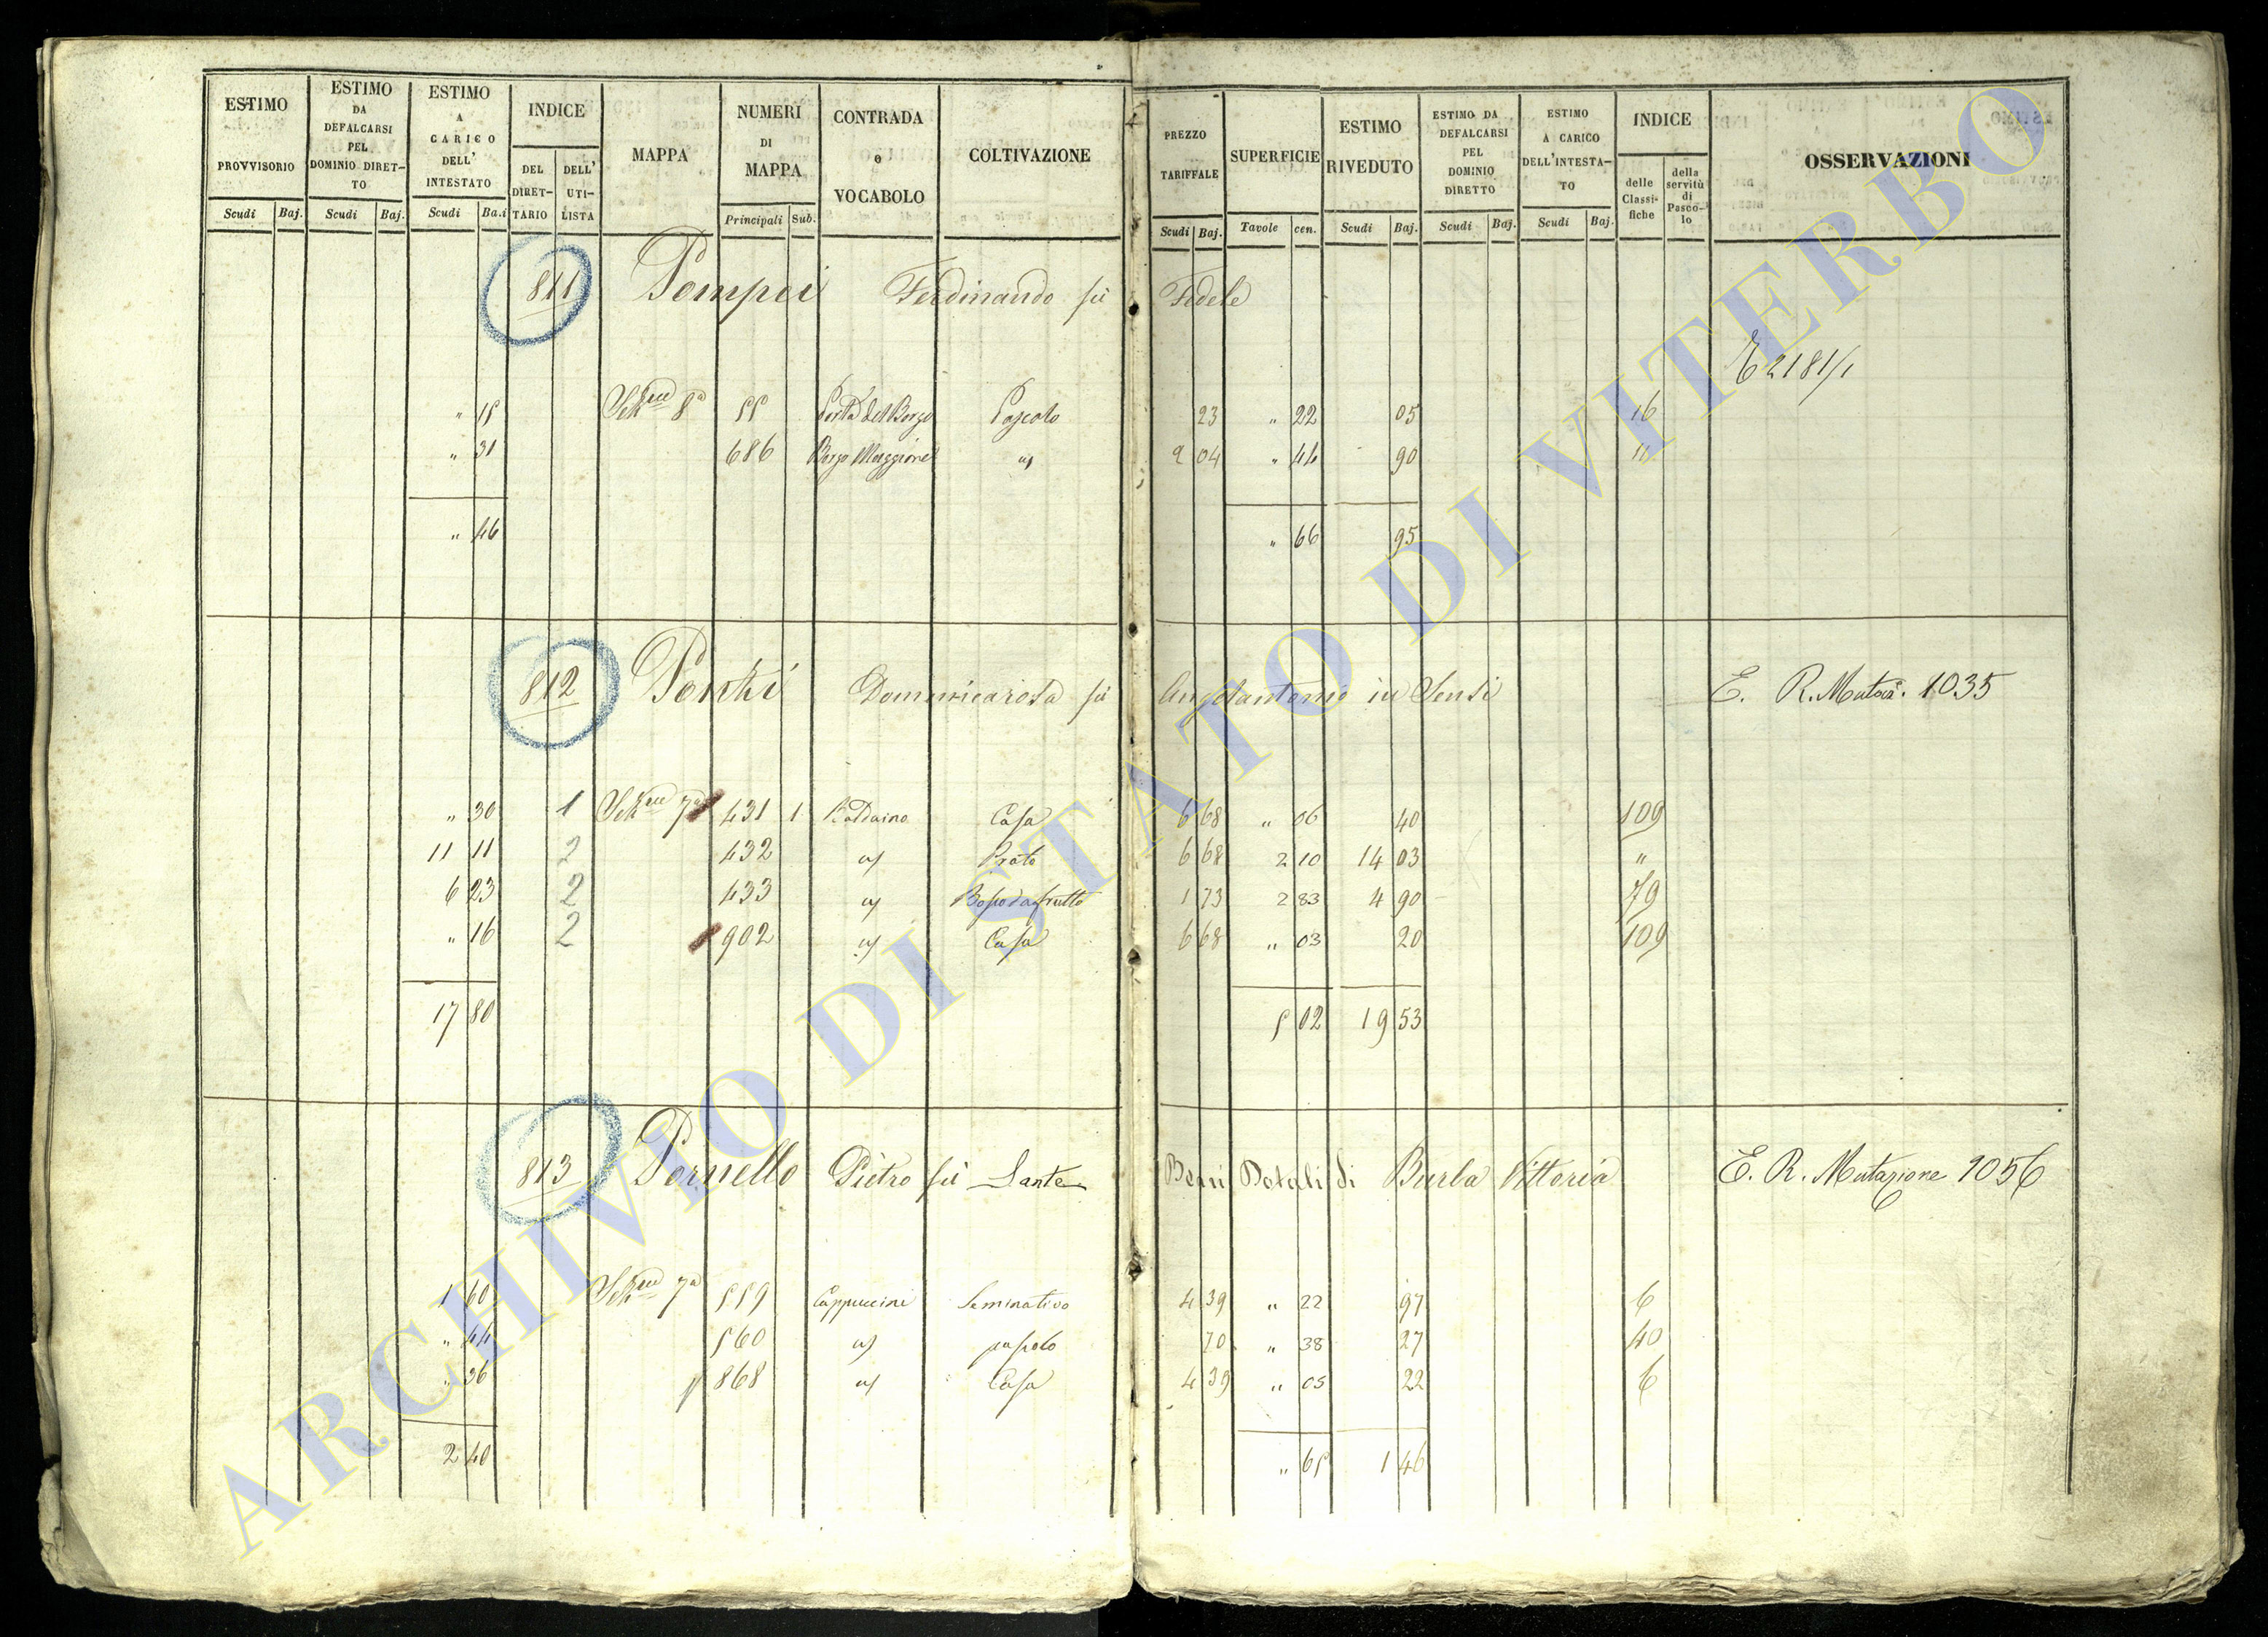 ESTIMO PROVVISORIO Scudi Baj.
ESTIMO DA DEFALCARSI PEL DOMINIO DIRET-TO Scudi Baj.
ESTIMO A CARICO DELL' INTESTATO Scudi Ba.i
INDICE DEL DIRET-TARIO DELL' UTI-LISTA
MAPPA
NUMERI DI MAPPA Principali Sub.
CONTRADA o VOCABOLO
COLTIVAZIONE
PREZZO TARIFFALE Scudi Baj.
SUPERFICIE Tavole cen.
ESTIMO RIVEDUTO Scudi Baj.
ESTIMO DA DEFALCARSI PEL DOMINIO DIRETTO Scudi Baj.
ESTIMO A CARICO DELL'INTESTA-TO Scudi Baj.
INDICE delle Classi-fiche della servitù di Pasco-lo
OSSERVAZIONI
811 Pompei Ferdinando fù Fedele
E 2181/1
" 15 8a 55 Porta del Borgo Pascolo 23 " 22 05 16
" 31 686 Borgo Maggiore " 2 04 " 44 90 11
" 46 " 66 95
812 Ponti Domenicarosa fù Angelantonio in Sensi E. R. Mutaz. 1035
" 30 1 7a 431 1 Casa 6 68 " 06 40 109
11 11 2 432 Prato 6 68 2 10 14 03 "
6 23 2 433 Bosco da frutto 1 73 2 83 4 90 79
" 16 2 902 Casa 6 68 " 03 20 109
17 80 5 02 19 53
813 Pornello Pietro fù Sante Beni Dotali di Burla Vittoria E. R. Mutazione 1056
1 60 7a 559 Cappuccini Seminativo 4 39 " 22 97 6
" 44 560 pascolo 70 " 38 27 40
" 36 868 Casa 4 39 " 05 22 6
2 40 " 65 1 46
ARCHIVIO DI STATO DI VITERBO